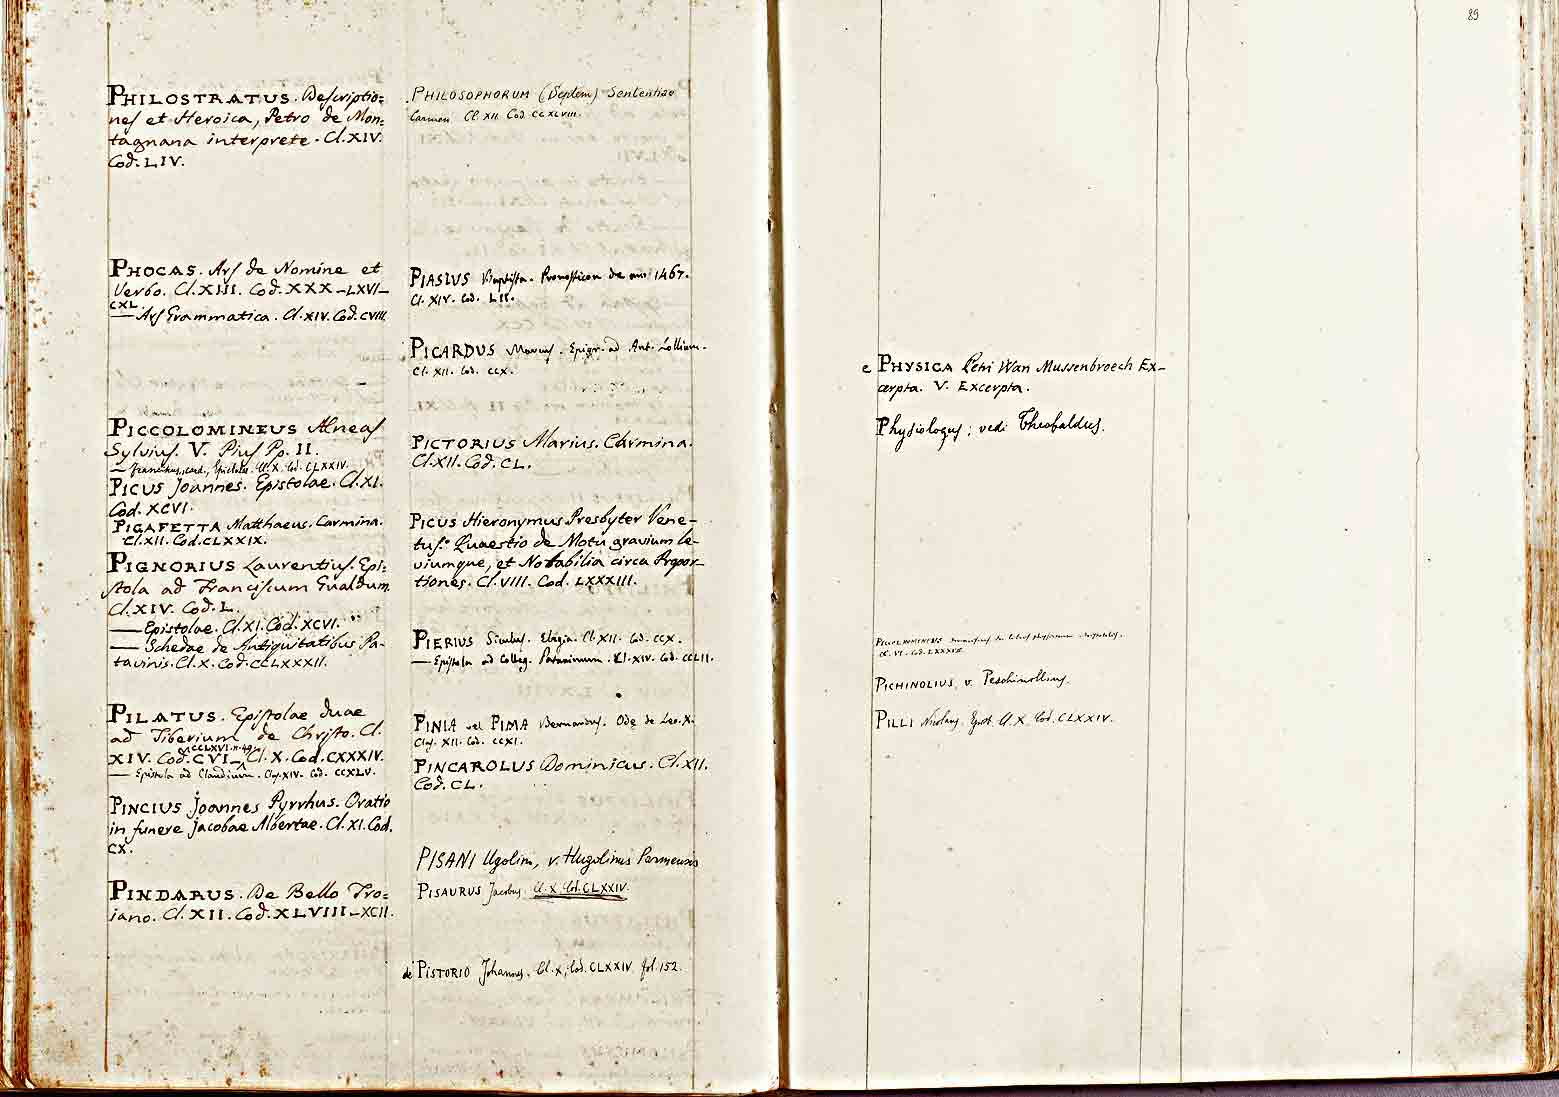 PHILOSTRATUS. Descriptio=
nes et Heroica, Petro de Mon=
tagnana interprete. Cl. XIV.
Cod. LIV.
PHOCAS. Ars de Nomine et
Verbo. Cl. XIII. Cod. XXX_LXVI_
CXL.
— Ars Grammatica. Cl. XIV. Cod. CVIII.
PICCOLOMINEUS Æneas
Sylvius. V. Pius Pp. II.
— Franciscus, card., Epistolae. Cl. X. Cod. CLXXIV.
PICUS Joannes. Epistolae. Cl. XI.
Cod. XCVI.
PIGAFETTA Matthaeus. Carmina.
Cl. XII. Cod. CLXXIX.
PIGNORIUS Laurentius. Epi=
stola ad Franciscum Gualdum.
Cl. XIV. Cod. L.
— Epistolae. Cl. XI. Cod. XCVI.
— Schedae de Antiquitatibus Pa-
tavinis. Cl. X. Cod. CCLXXXII.
PILATUS. Epistolae duae
ad Tiberium de Christo. Cl.
CCLXVI. n. 49
XIV. Cod. CVI_Cl. X. Cod. CXXXIV.
— Epistola ad Claudium. Clas. XIV. Cod. CCXLV.
PINCIUS Joannes Pyrrhus. Oratio
in funere Jacobae Albertae. Cl. XI. Cod.
CX.
PINDARUS. De Bello Tro=
iano. Cl. XII. Cod. XLVIII_XCII.
PHILOSOPHORUM (Septem) Sententiae
Carmen Cl. XII. Cod. CCXLVIII.
PIASIUS Baptista. Pronosticon de anno 1467.
Cl. XIV. Cod. LII.
PICARDUS Marius. Epigr. ad Ant. Lollium.
Cl. XII. Cod. CCX.
PICTORIUS Marius. Carmina.
Cl. XII. Cod. CL.
PICUS Hieronymus Presbyter Vene-
tus. Quaestio de Motu gravium le-
viumque, et Notabilia circa Propor-
tiones. Cl. VIII. Cod. LXXXIII.
PIERIUS Siculus. Elegia. Cl. XII. Cod. CCX.
— Epistola ad Colleg. Patavinum. Cl. XIV. Cod. CCLII.
PINIA vel PIMA Bernardus. Ode de Leo. X.
Clas. XII. Cod. CCXI.
PINCAROLUS Dominicus. Cl. XII.
Cod. CL.
PISANI Ugolini, v. Hugolinus Parmensis
PISAURUS Jacobus Cl. X. Cod. CLXXIV.
de PISTORIO Johannes. Cl. X, Cod. CLXXIV fol. 152.
89
e PHYSICA Petri Wan Mussenbroech Ex-
cerpta. V. Excerpta.
Physiologus; vedi Theobaldus.
PICCOLOMINEUS
Cl. VI. Cod. LXXXIX
PICHINOLIUS, v. Peschinollius.
PILLI Nicolaus. Epist. Cl. X. Cod. CLXXIV.